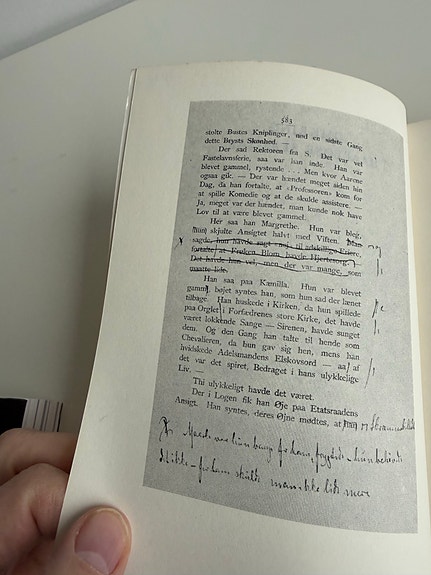 583
stolte Bustes Kniplinger, nød en sidste Gang
dette Brysts Skønhed. —
Der sad Rektoren fra S. Det var vel
Fastelavnsferie, saa var han inde. Han var
blevet gammel, rystende . . . Men kvor Aarene
ogsaa gik. — Der var hændet meget siden hin
Dag, da han fortalte, at »Professoren« kom for
at spille Komedie og at de skulde assistere. —
Ja, meget var der hændet, man kunde nok have
Lov til at være blevet gammel.
Her saa han Margrethe. Hun var bleg,
hun skjulte Ansigtet halvt med Viften. Man
sagde, hun havde sagt nej til adskillige Friere,
fortalte, at Frøken Blom havde Hjertesorg.
Det havde hun vel, men der var mange, som
maatte lide.
Han saa paa Kæmilla. Hun var blevet
gammel, bøjet syntes han, som hun sad der lænet
tilbage. Han huskede i Kirken, da hun spillede
paa Orglet i Forfædrenes store Kirke, det havde
været lokkende Sange — Sirenen, havde sunget
den. Og den Gang han talte til hende som
Chevalieren, da hun gav sig hen, mens han
hviskede Adelsmandens Elskovsord — aa, af
det var det spiret, Bedraget i hans ulykkelige
Liv. —
Thi ulykkeligt havde det været.
Der i Logen fik han Øje paa Etatsraadens
Ansigt. Han syntes, deres Øjne mødtes, at han